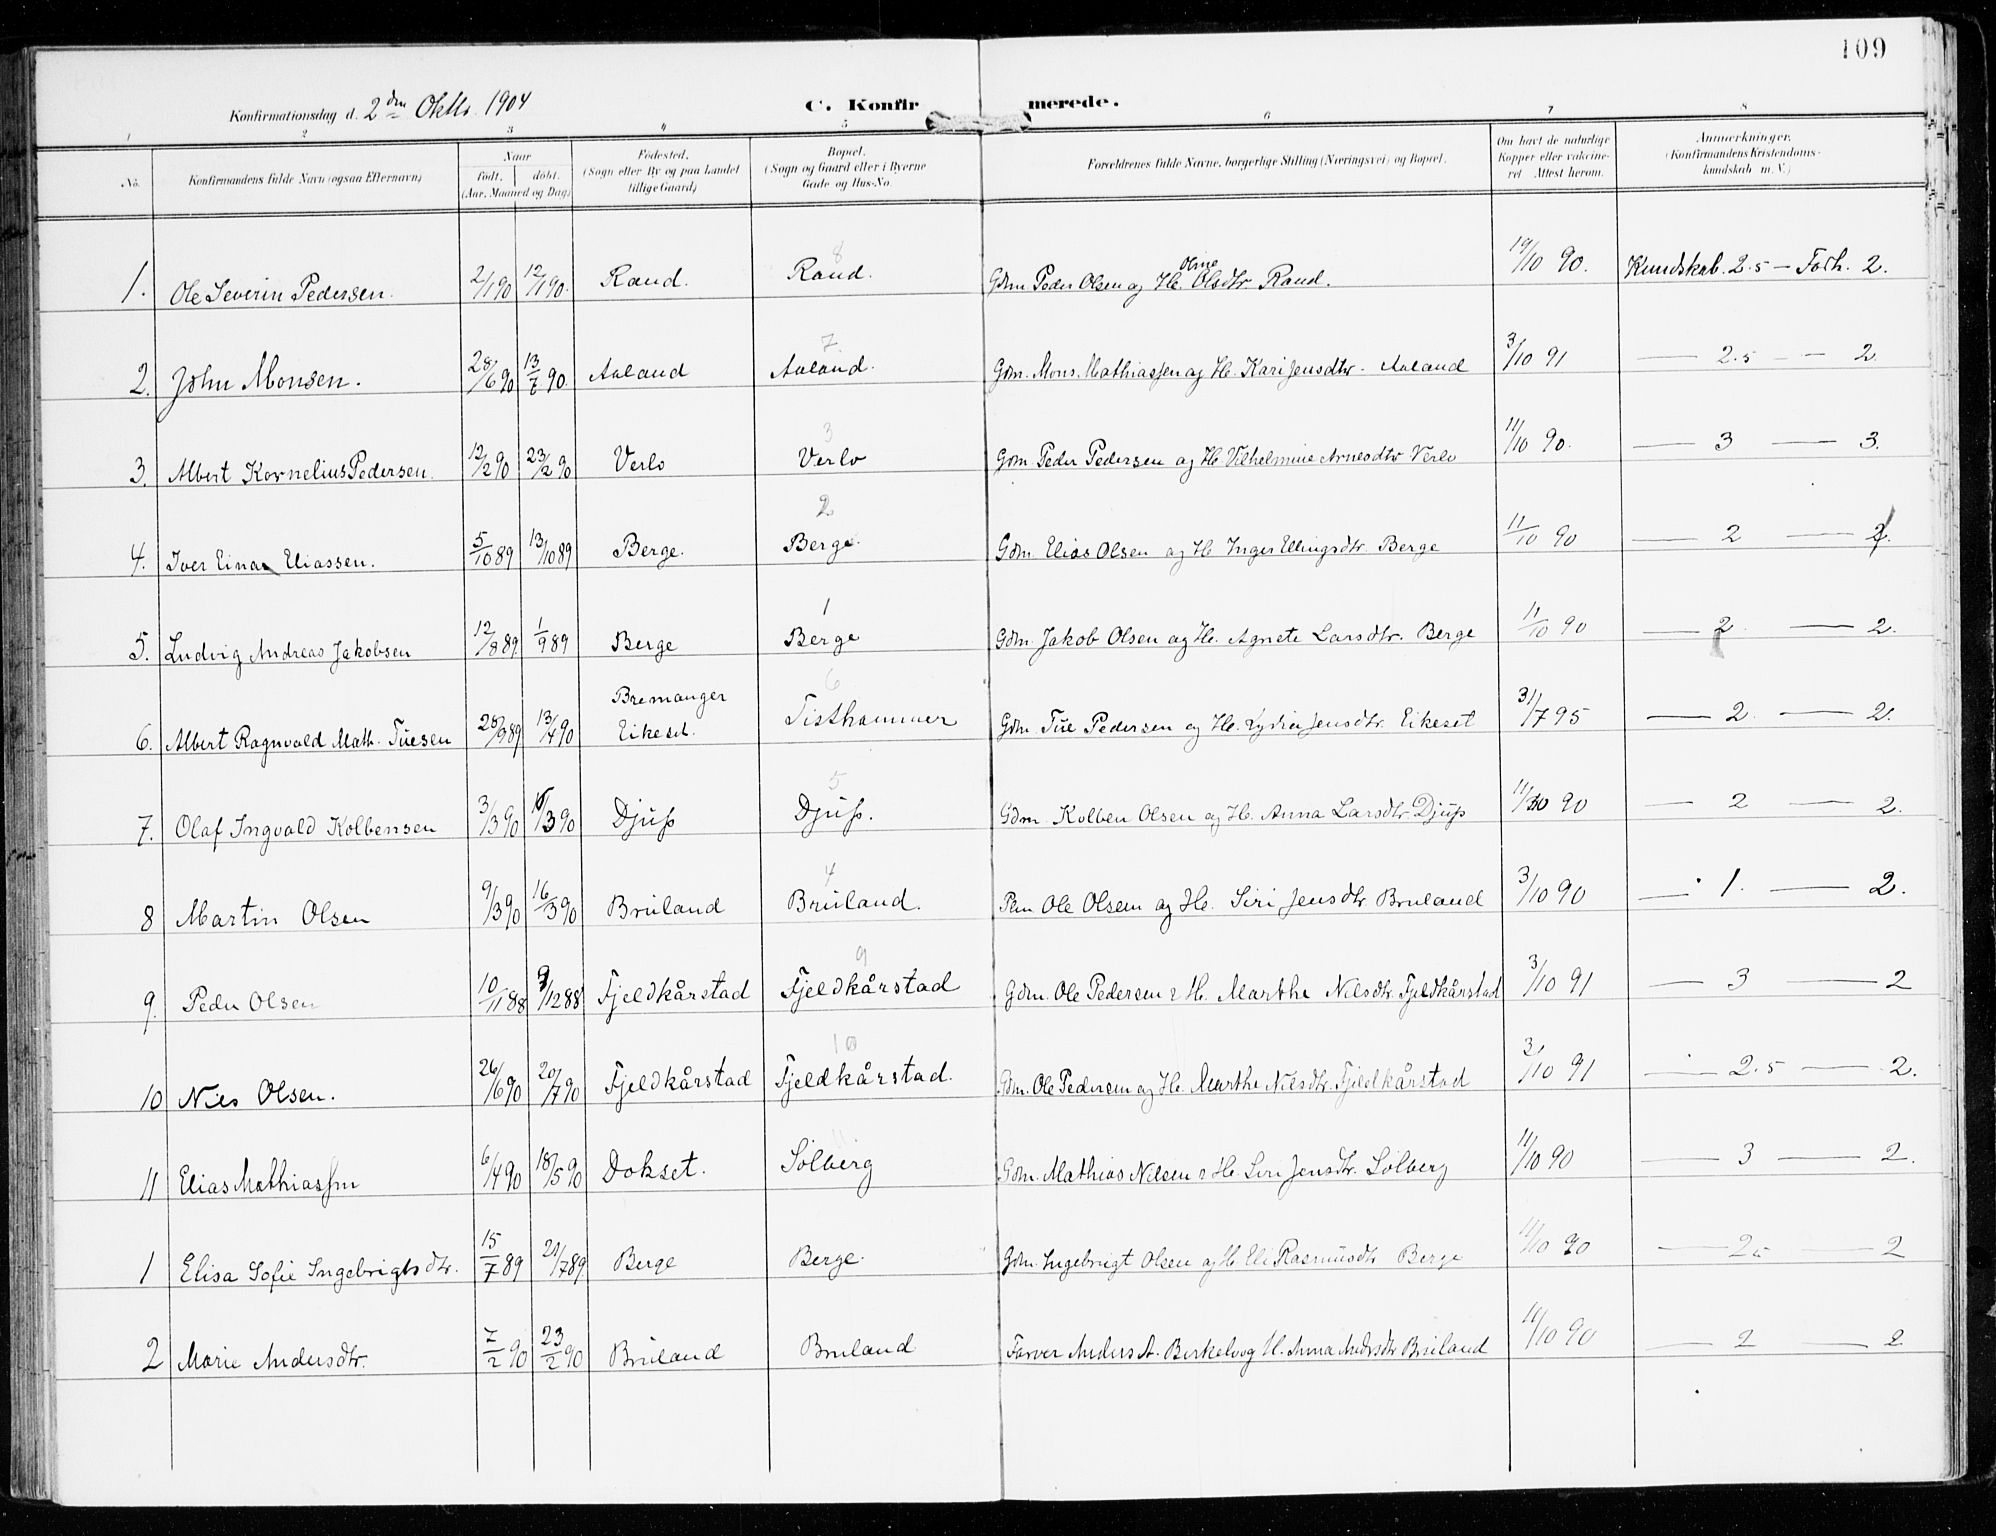 109
Konfirmationsdag d. 2den Oktbr. 1904 C. Konfirmerede.
1 2 3 4 5 6 7 8
No. Konfirmandens fulde Navn (ogsaa Efternavn) Naar født. døbt. (Aar, Maaned og Dag) Fødested. (Sogn eller By og paa Landet tillige Gaard) Bopæl. (Sogn og Gaard eller i Byerne Gade og Hus-No. Forældrenes fulde Navne, borgerlige Stilling (Næringsvei) og Bopæl. Om havt de naturlige Kopper eller vakcineret Attest herom. Anmærkninger. (Konfirmandens Kristendomskundskab m. V.)
8
1. Ole Severin Pedersen. 2/1 90 12/1 90. Raud. Raud. Gdm Peder Olsen og H. Oline Olsdtr. Raud. 19/10 90. Kundskab. 2.5 — Forh. 2.
7
2. John Monsen. 28/6 90 13/7 90. Aaland Aaland. Gdm. Mons. Mathiassen og H. Kari Jensdtr. Aaland 3/10 91 — 2.5 — 2.
3
3. Albert Kornelius Pedersen. 12/2 90 23/2 90 Verlo Verlo Gdm Peder Pedersen og H Vilhelmine Arnesdtr Verlo 11/10 90. — 3 — 3.
2
4. Iver Einar Eliassen. 5/10 89 13/10 89 Berge. Berge Gdm. Elias Olsen og H Inger Ellingsdtr. Berge 11/10 90 — 2 — 2.
1
5. Ludvig Andreas Jakobsen 12/8 89 1/9 89 Berge Berge Gdm. Jakob Olsen og H. Agnete Larsdtr. Berge 11/10 90 — 2 — 2.
6
6. Albert Ragnvald Math. Tuesen 28/9 89 13/4 90 Bremanger Eikeset. Tisthammer Gdm. Tue Pedersen og H. Lydia Jensdtr. Eikeset 31/7 95 — 2. — 2.
5
7. Olaf Ingvald Kolbensen 3/3 90 /3 90 Djup Djup. Gdm Kolben Olsen og H. Anna Larsdtr. Djup 11/10 90 — 2 — 2.
4
8 Martin Olsen 9/3 90 16/3 90 Bruland Bruland. Pm Ole Olsen og H. Siri Jensdtr Bruland 3/10 90 — 1. — 2.
9
9. Peder Olsen 10/11 88 9/12 88 Fjeldkårstad Fjeldkårstad Gdm. Ole Pedersen & H. Marthe Nilsdtr. Fjeldkårstad 3/10 91 — 3 — 2
10
10 Nils Olsen. 26/6 90 20/7 90 Fjeldkårstad Fjeldkårstad. Gdm. Ole Pedersen og H. Marthe Nilsdtr. Fjeldkårstad 3/10 91 — 2.5 — 2.
11
11 Elias Mathiassen 6/4 90 18/5 90 Dokset. Solberg Gdm. Mathias Nilsen & H. Siri Jensdtr. Solberg 11/10 90 — 3 — 2.
1 Elisa Sofie Ingebrigtsdtr. 15/7 89 21/7 89 Berge Berge. Gdm. Ingebrigt Olsen og H Eli Rasmusdtr Berge 11/10 90 — 2.5 — 2
2 Marie Andersdtr. 7/2 90 23/2 90 Bruland Bruland Farver Anders A. Birkelv og H. Anna Andrsdtr Bruland 11/10 90 — 2 — 2